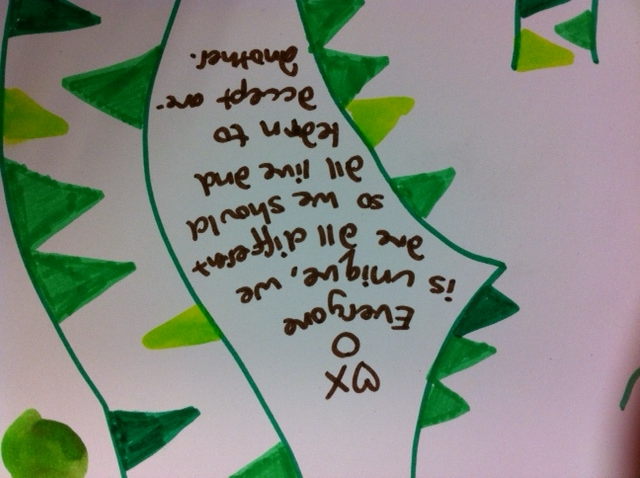 ♡X
O
Everyone
is unique, we
are all different
so we should
all live and
learn to
accept one
another.